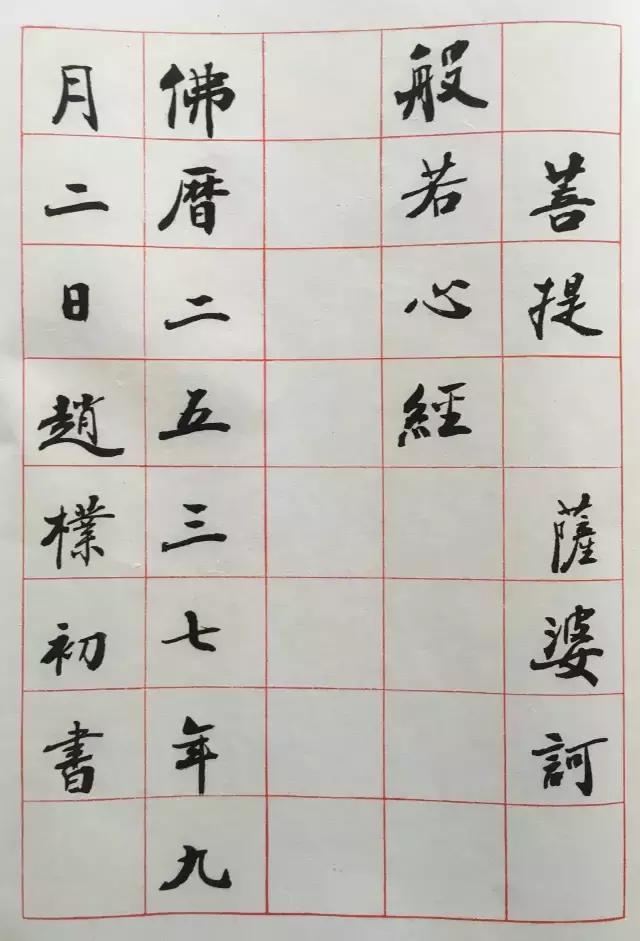 菩提薩婆訶
般若心經
佛曆二五三七年九
月二日趙樸初書